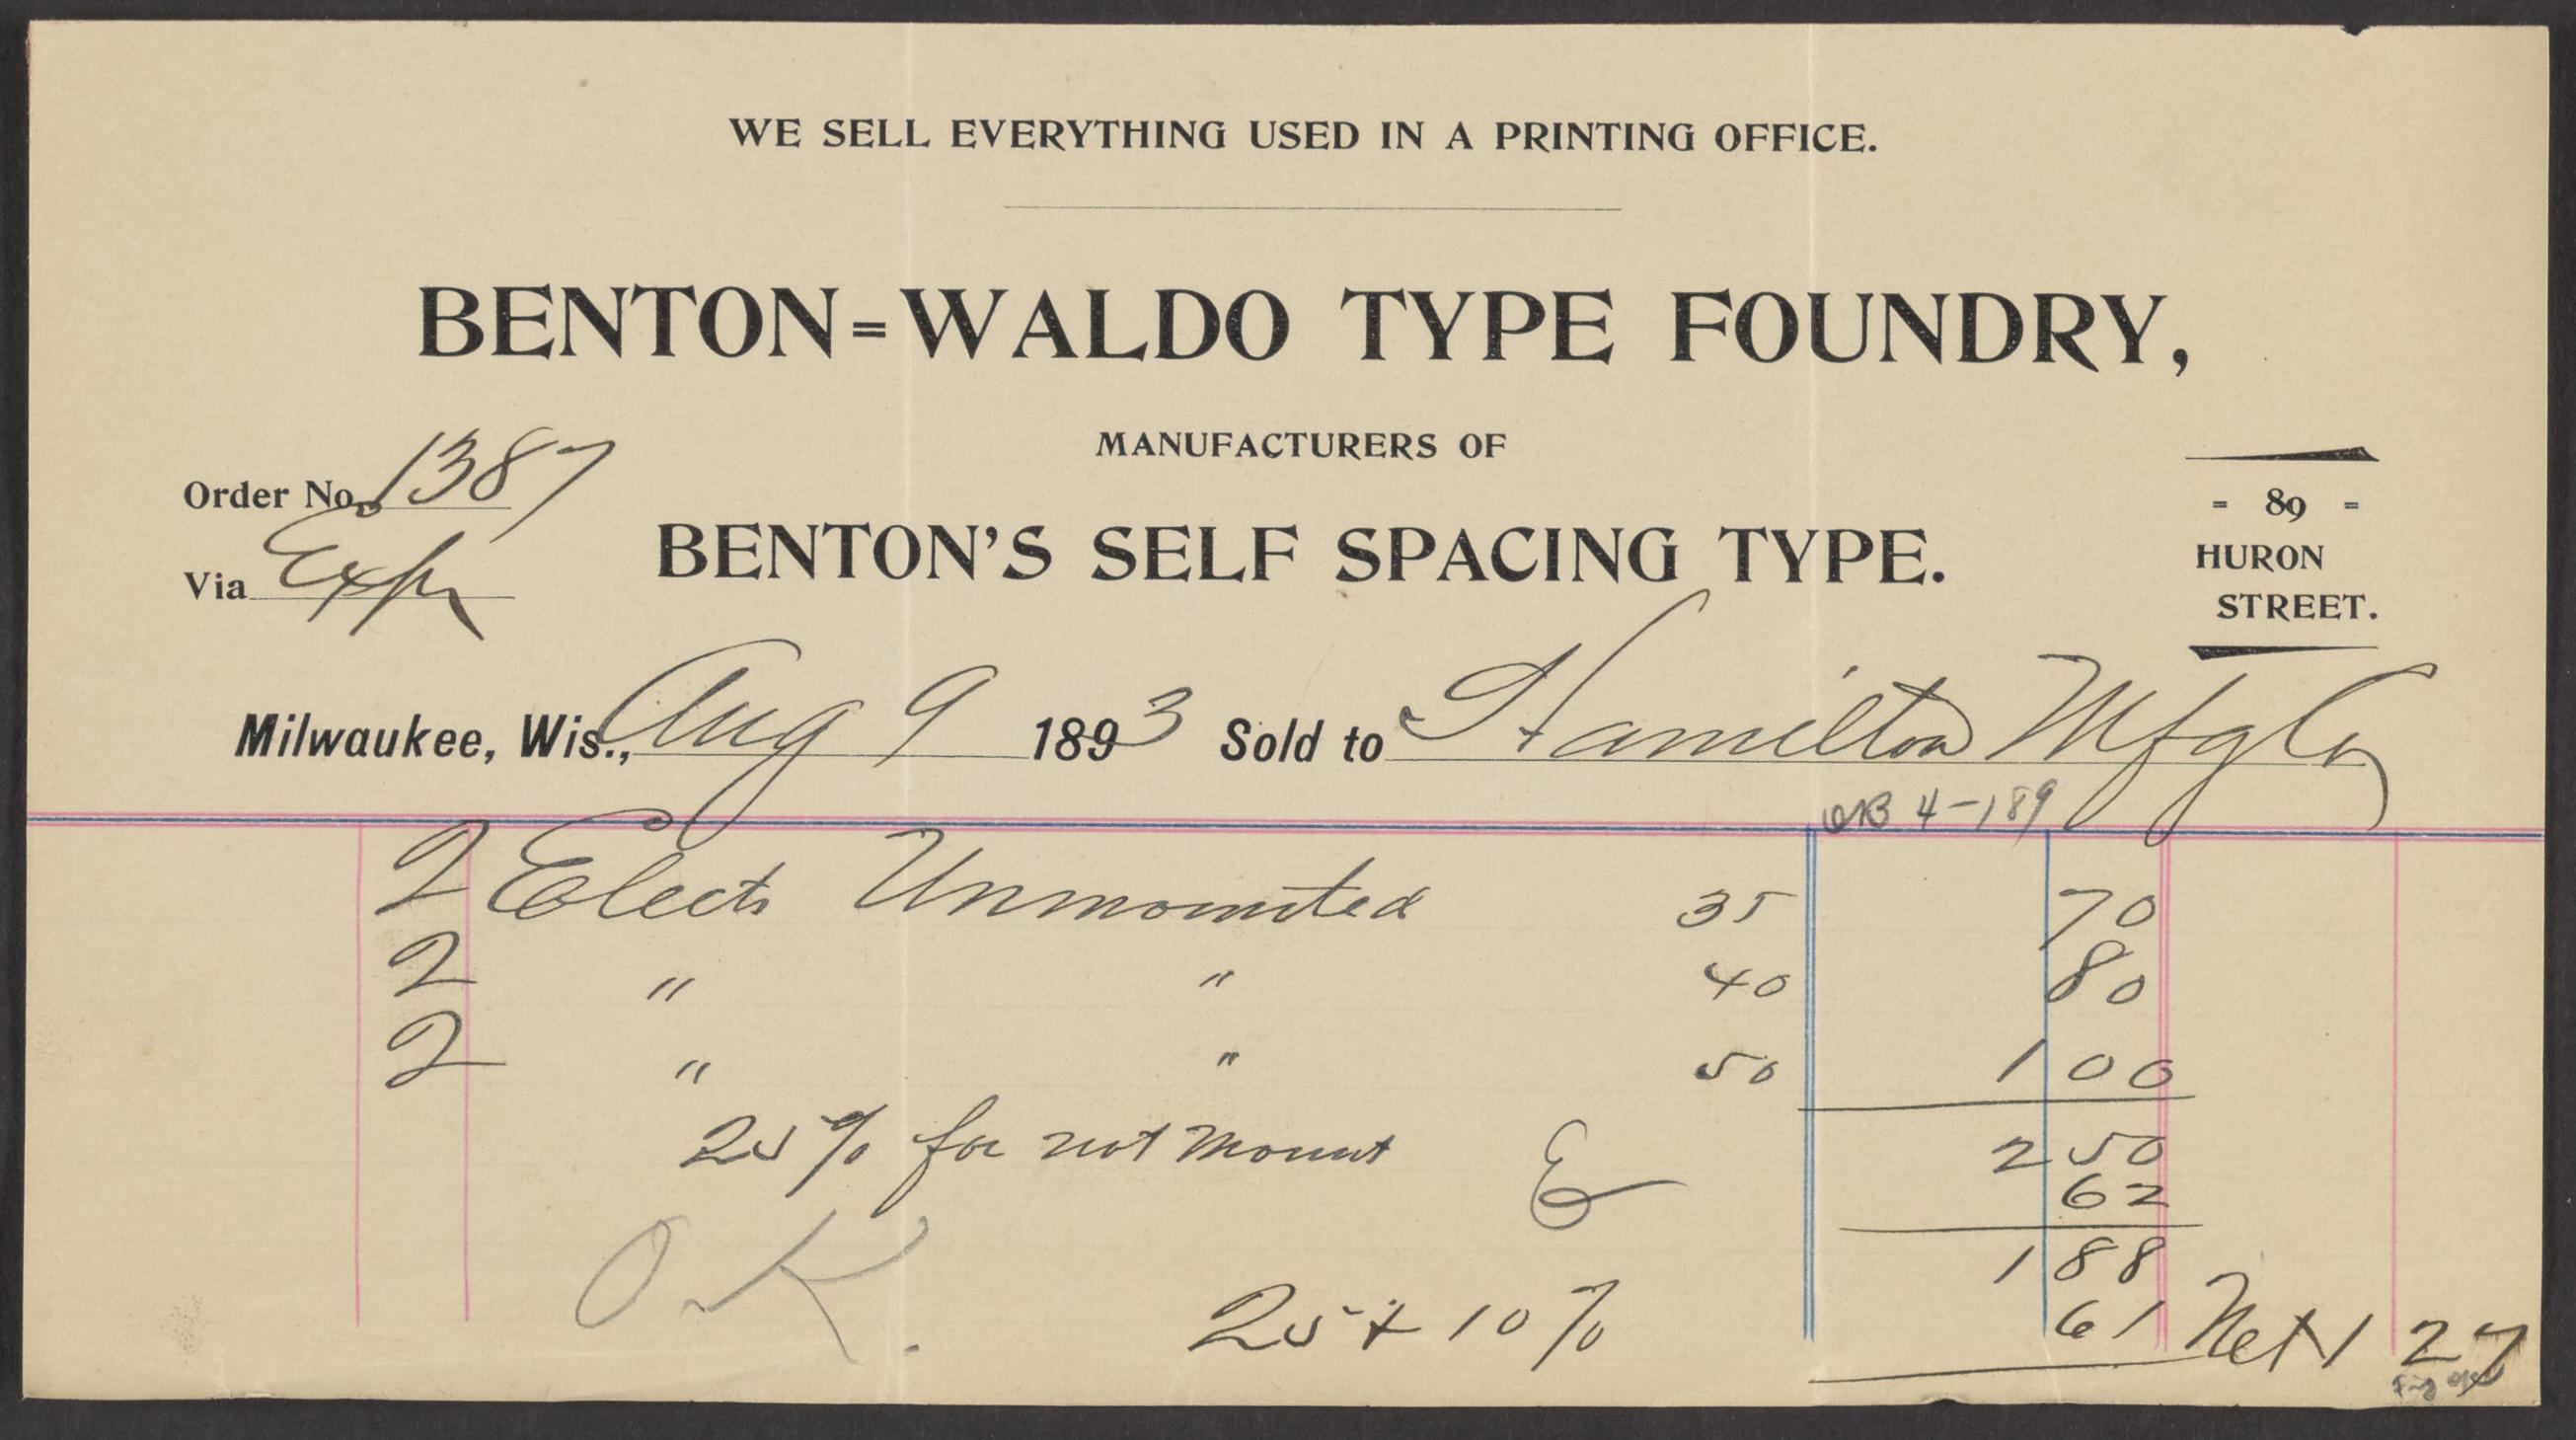 WE SELL EVERYTHING USED IN A PRINTING OFFICE.
BENTON=WALDO TYPE FOUNDRY,
MANUFACTURERS OF
Order No. 1387
BENTON'S SELF SPACING TYPE.
Via Expr
- 89 -
HURON
STREET.
Milwaukee, Wis., Aug 9 1893 Sold to Hamilton Mfg Co
4-189
2 Elects Unmounted 35 70
2 " " 40 80
2 " " 50 1 00
2 50
25% for not mount 62
1 88
O.K.
25 + 10% 61 Net 1 27